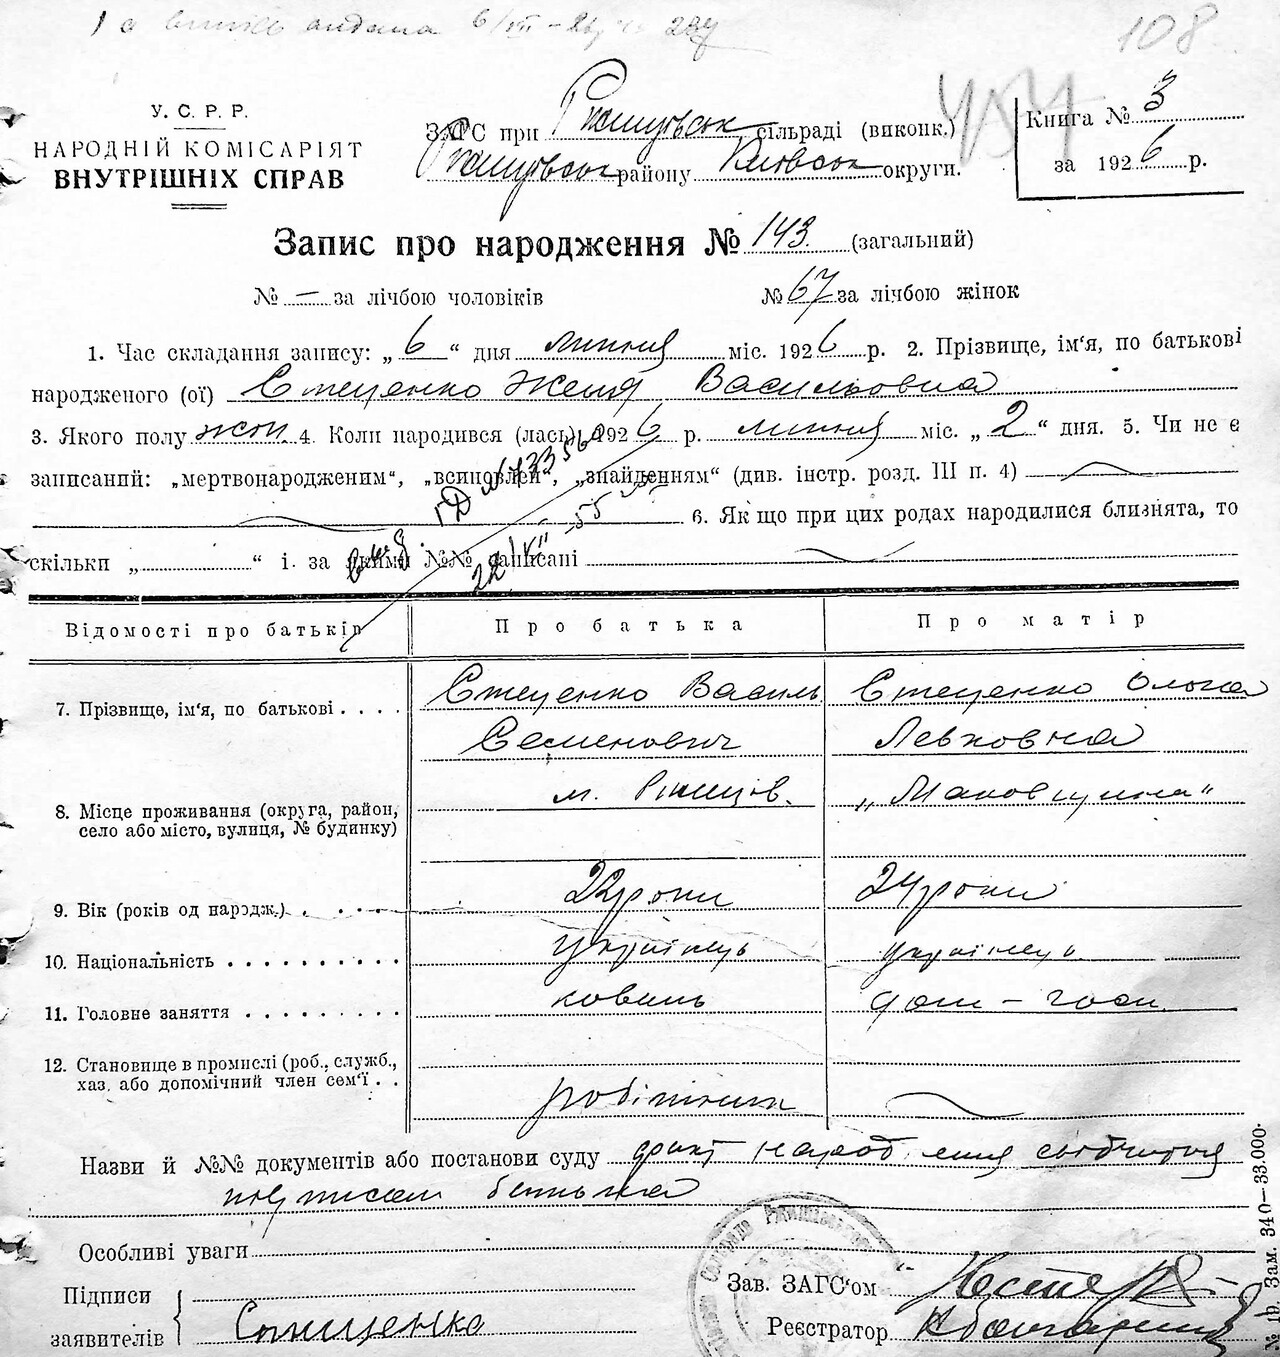 108
У.С.Р.Р.
НАРОДНІЙ КОМІСАРІЯТ
ВНУТРІШНІХ СПРАВ
ЗАГС при Ржищівськ сільраді (виконк.)
Ржищівськ району Київськ округи.
Книга № 3
за 1926 р.
Запис про народження № 143 (загальний)
№ — за лічбою чоловіків № 67 за лічбою жінок
1. Час складання запису: „6“ дня липня міс. 1926 р. 2. Прізвище, ім'я, по батькові
народженого (ої) Стеценко Женя Васильовна
3. Якого полу жін. 4. Коли народився (лась) 1926 р. липня міс. „2“ дня. 5. Чи не є
записаний: „мертвонародженим“, „всиновлен“, „знайденням“ (див. інстр. розд. III п. 4)
6. Як що при цих родах народилися близнята, то
скільки „ “ і за якими №№ записані
Відомості про батьків Про батька Про матір
7. Прізвище, ім'я, по батькові . . . . Стеценко Василь Стеценко Ольга
Семенович Левковна
м. Ржищів. „Маковщина“
8. Місце проживання (округа, район,
село або місто, вулиця, № будинку)
9. Вік (років од народж.) 22 роки 24 роки
10. Національність українць українць
11. Головне заняття коваль дом – госп.
12. Становище в промислі (роб., служб.,
хаз. або допомічний член сем'ї . .
робітник
Назви й №№ документів або постанови суду факт народження свідчиться
підписом батька
Особливі уваги
Підписи
заявителів Стеценко
Зав. ЗАГС'ом
Реєстратор
Зам. 340—33.000.